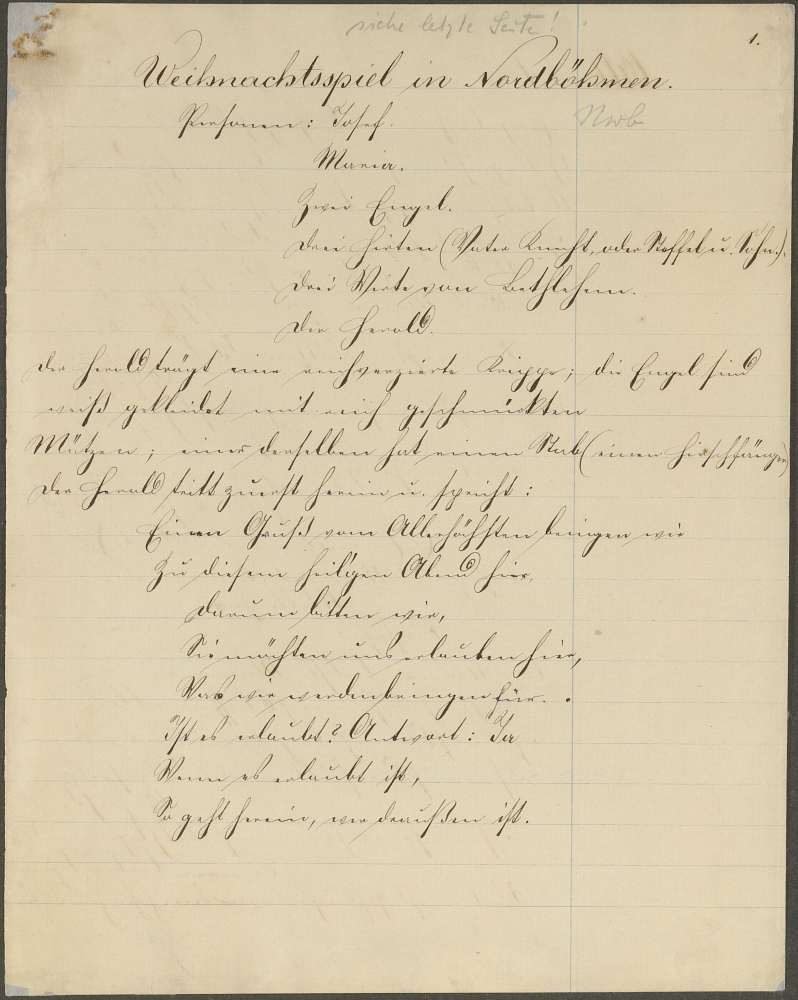 siehe letzte Seite!
1.
Weihnachtsspiel in Nordböhmen.
Nwb
Personen: Josef.
Maria.
Zwei Engel.
Drei Hirten (Vater Knecht, oder Stoffel u. Sohn.).
Drei Wirte von Bethlehem.
Der Herold.
Der Herold trägt eine reichverzierte Krippe; die Engel sind
weiß gekleidet mit reich geschmückten
Mützen; einer derselben hat einen Stab (einen Hirschfänger)
Der Herold tritt zuerst herein u. spricht:
Einen Gruß vom Allerhöchsten bringen wir
Zu diesem heil'gen Abend hier,
Darum bitten wir,
Sie möchten uns erlauben hier,
Was wir werden bringen für.
Ist es erlaubt? Antwort: Ja
Wenn es erlaubt ist,
So geht herein, wer draußen ist.